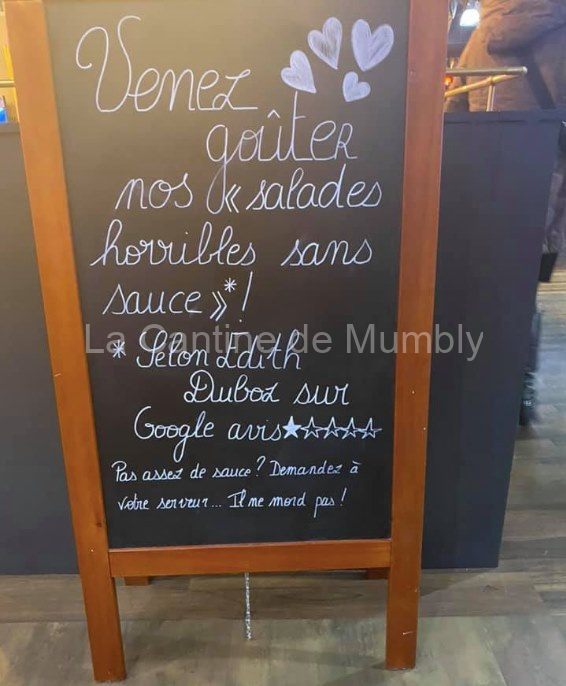 Venez
goûter
nos « salades
horribles sans
sauce »* !
* Selon Edith
Duboz sur
Google avis ★☆☆☆☆
Pas assez de sauce ? Demandez à
votre serveur... Il ne mord pas !
La Cantine de Mumbly